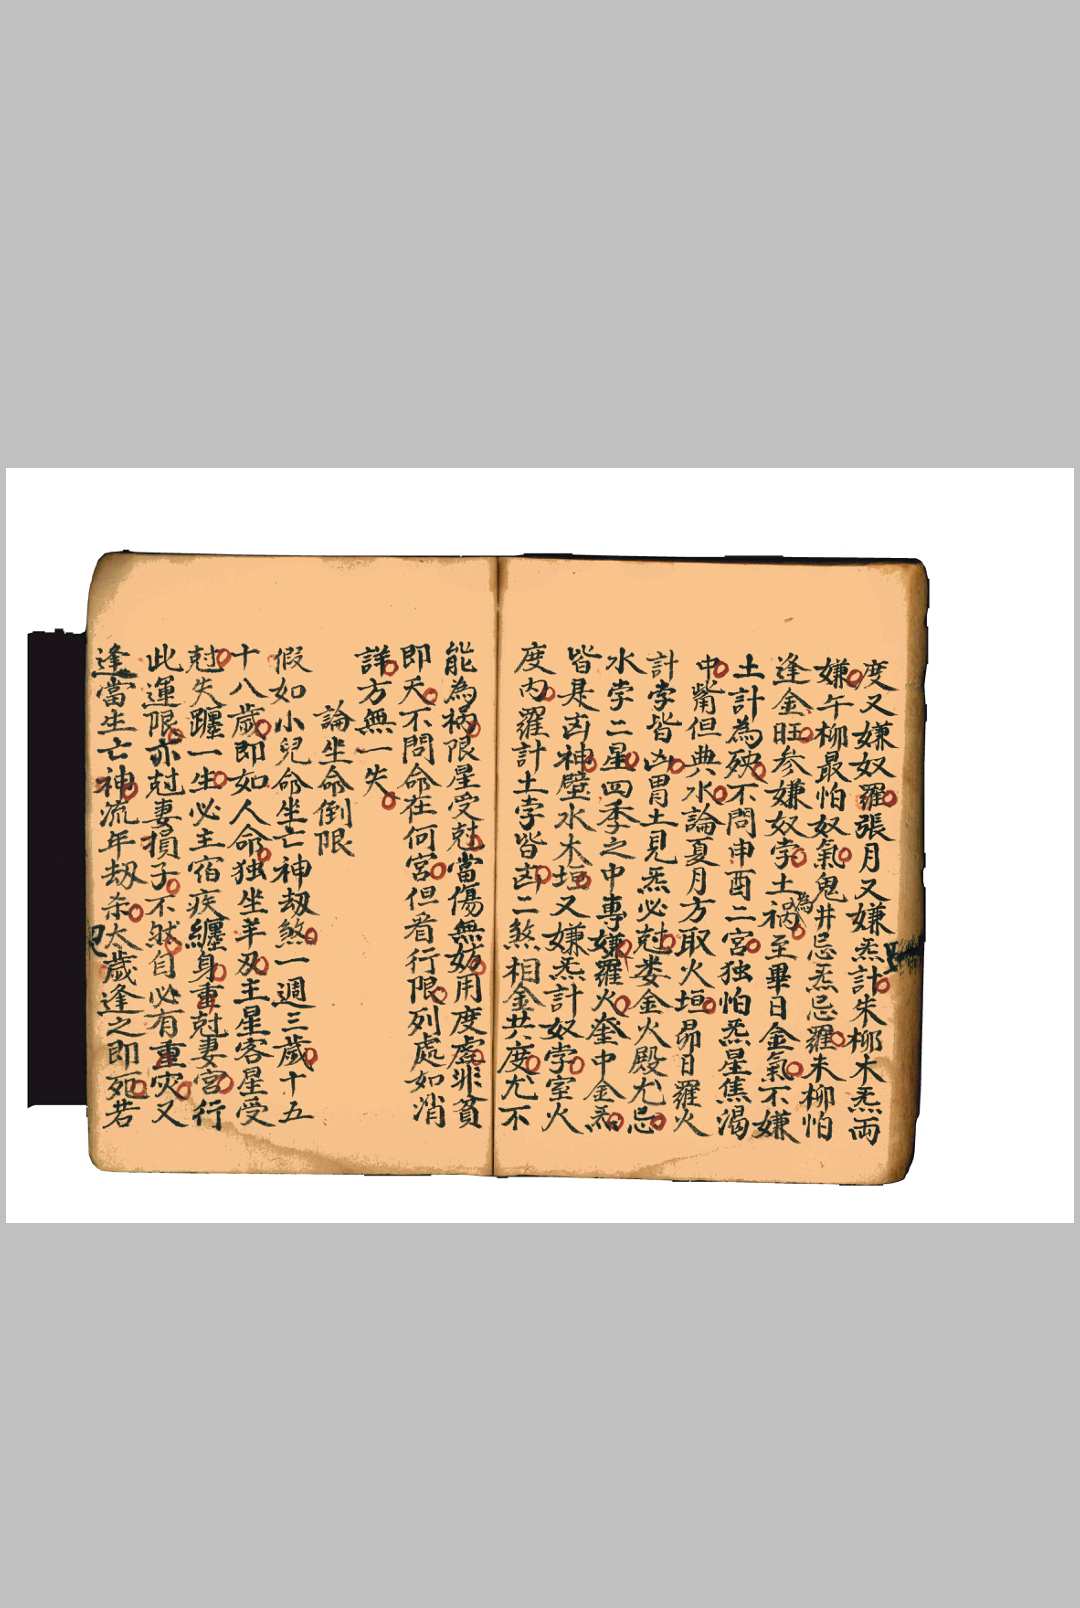 度又嫌奴羅張月又嫌炁計朱柳木炁両
嫌午柳最怕奴氣鬼井忌炁忌羅未柳怕
逢金旺参嫌奴孛土禍為至畢日金氣不嫌
土計為殃不問申酉二宮独怕炁星焦渴
中觜但典水論夏月方取火垣昴日羅火
計孛皆凶胃土見炁必尅婁金火殿尤忌
水孛二星四季之中專嫌羅火奎中金炁
皆是凶神壁水木垣又嫌炁計奴孛室火
度内羅計土孛皆凶二煞相金共度尤不
能為禍限星受尅當傷無妨用度處非貧
即夭不問命在何宮但看行限列處如消
詳方無一失
論坐命倒限
假如小兒命坐亡神刼煞一週三歲十五
十八歲即如人命独坐羊刃主星客星受
尅失躔一生必主宿疾纏身重尅妻宮行
此運限亦尅妻損子不然自必有重灾又
逢當生亡神流年刼杀太歲逢之即死若